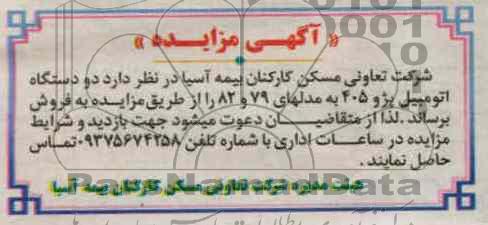 « آگهـی مزایـده »
شرکت تعاونی مسکن کارکنان بیمه آسیا در نظر دارد دو دستگاه
اتومبیل پژو ۴۰۵ به مدلهای ۷۹ و ۸۲ را از طریق مزایـده به فروش
برساند .لذا از متقاضیـان دعوت میشود جهت بازدید و شرایط
مزایده در ساعـات اداری با شماره تلفن ۰۹۳۷۵۶۷۴۲۵۸ تمـاس
حاصل نمایند .
هیئت مدیره شرکت تعاونی مسکن کارکنان بیمه آسیا
ParsNamadData